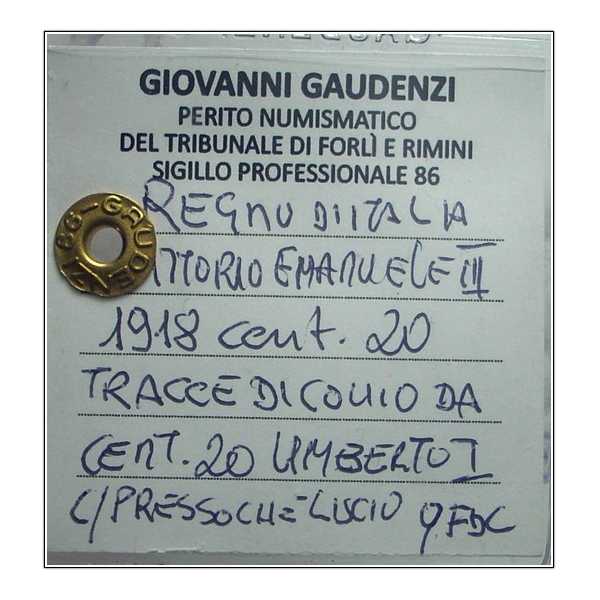 GIOVANNI GAUDENZI
PERITO NUMISMATICO
DEL TRIBUNALE DI FORLÌ E RIMINI
SIGILLO PROFESSIONALE 86
REGNO D'ITALIA
86-GAUDE
VITTORIO EMANUELE III
1918 cent. 20
TRACCE DI CONIO DA
CENT. 20 UMBERTO I
C/PRESSOCHE LISCIO qFDC